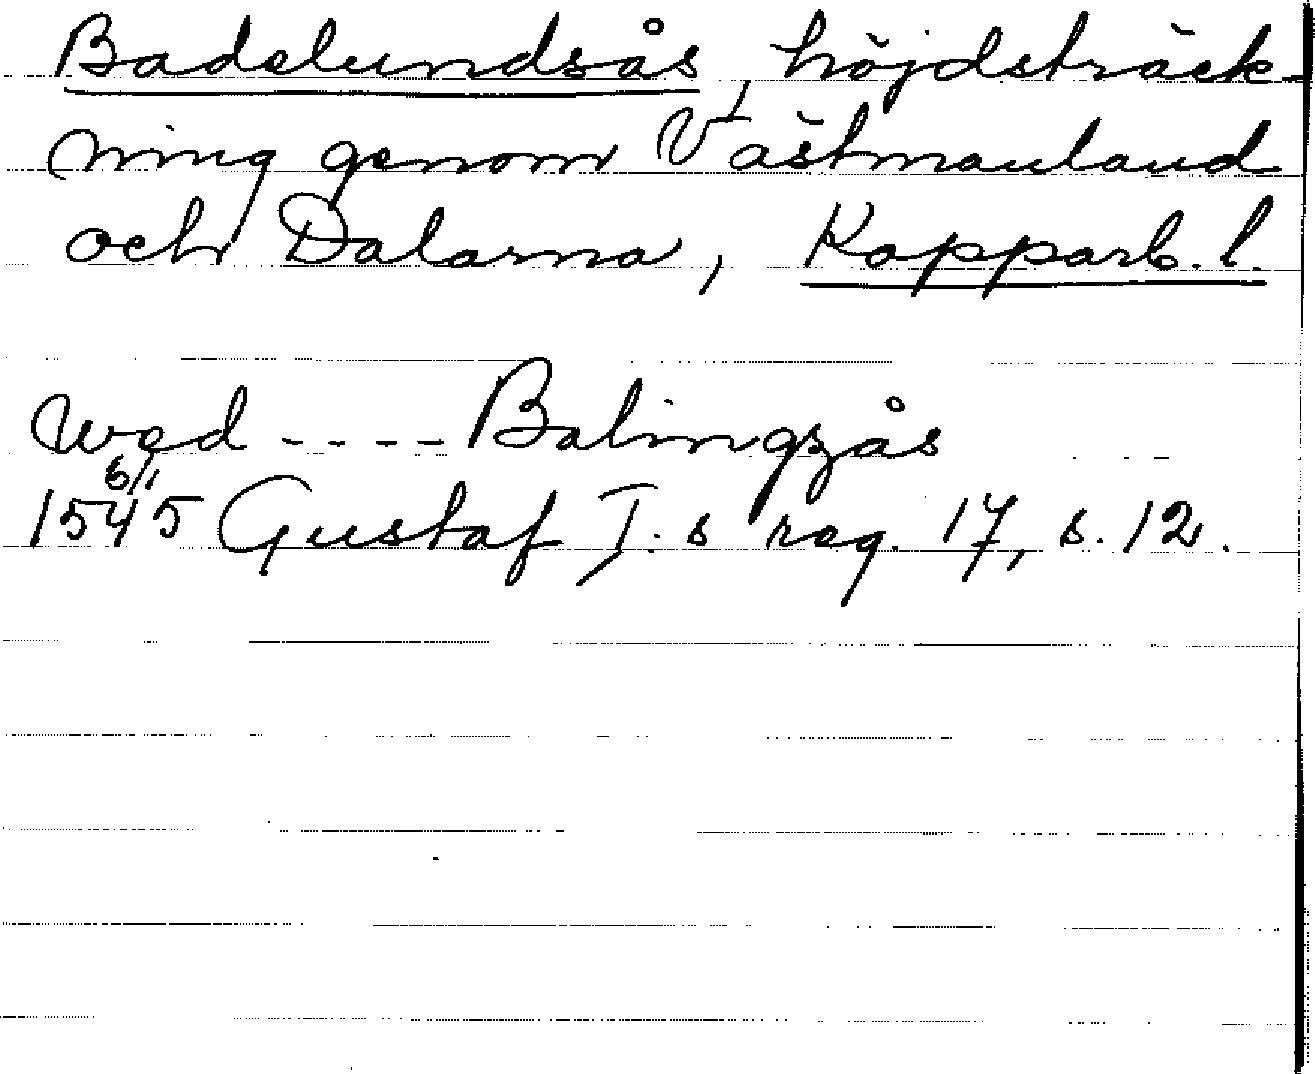 Badelundsås, höjdsträck-
ning genom Västmanland
och Dalarna, Kopparb. l.
wed ---- Balingzås
6/1
1545 Gustaf I.s reg. 17, s. 12.